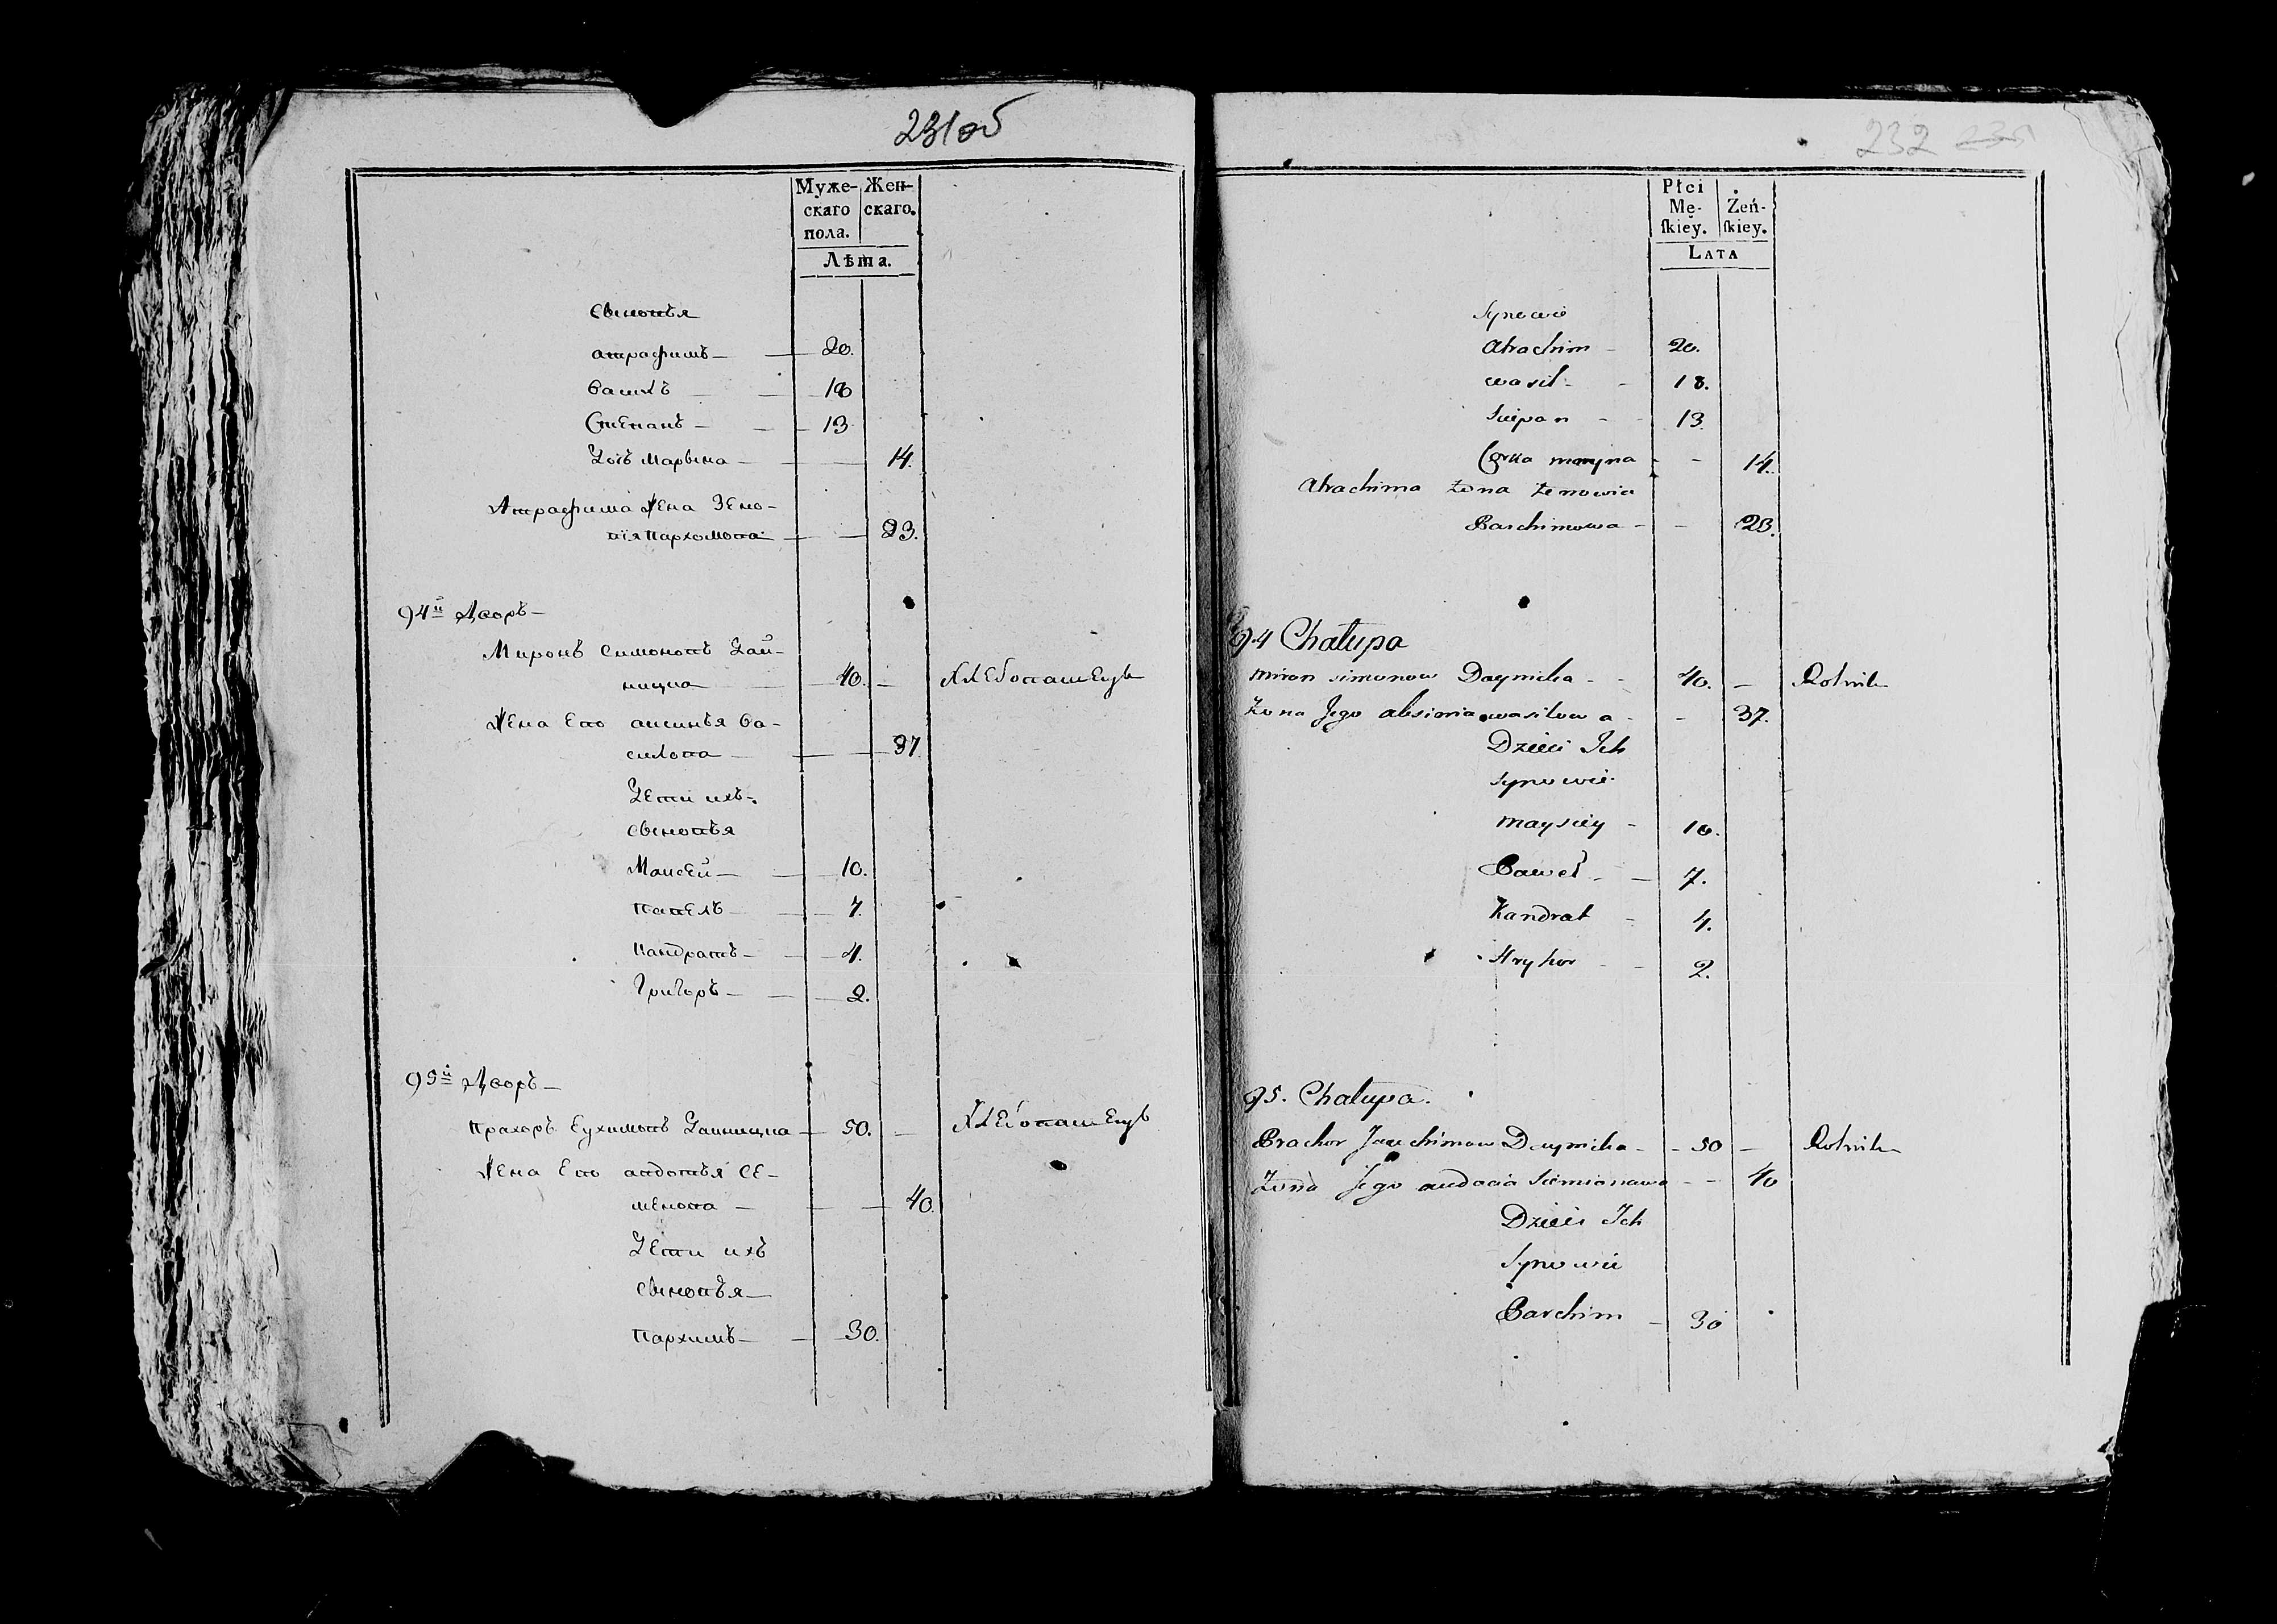 231об
Муже-
скаго
пола.
Жен-
скаго.
Лѣта.
Сыновья
Атрафимъ — 20.
Василь — 18
Степанъ — 13
Дочь Марына — 14.
Атрафима Жена Зено-
вія Пархомова — 23.
94й Дворъ —
Миронъ Симоновъ Дай-
ницка — 40. — Хлебопашецъ
Жена Его аксинья Ва-
силова — 37
Дети ихъ
Сыновья
Маисей — 10.
Павелъ — 7.
Кандратъ — 4.
Григоръ — 2.
95й Дворъ —
Прахоръ Еухимовъ Дайницка — 50. — Хлебопашецъ
Жена Его авдотья Се-
менова — 40.
Дети ихъ
Сыновья —
Пархимъ — 30.
232
Płci
Mę-
ſkiey.
Żeń-
ſkiey.
LATA
Synowie
Atrachim - 20.
wasil - 18.
Sciepan - 13.
Corka maryna - 14.
Atrachima żona Zenowia
Parchimowa - 23.
94 Chałupa
miron simonow Daynicka - 40. — Rolnik
Żona Jego aksinia wasilowa - 37.
Dzieci Ich
Synowie
maysiey - 10.
Paweł - 7.
Kandrat - 4.
Hryhor - 2.
95. Chałupa.
Prachor Jauchimow Daynicka - 50 — Rolnik
Żona Jego audocia Siemionawa - 40
Dzieci Ich
Synowie
Parchim - 30